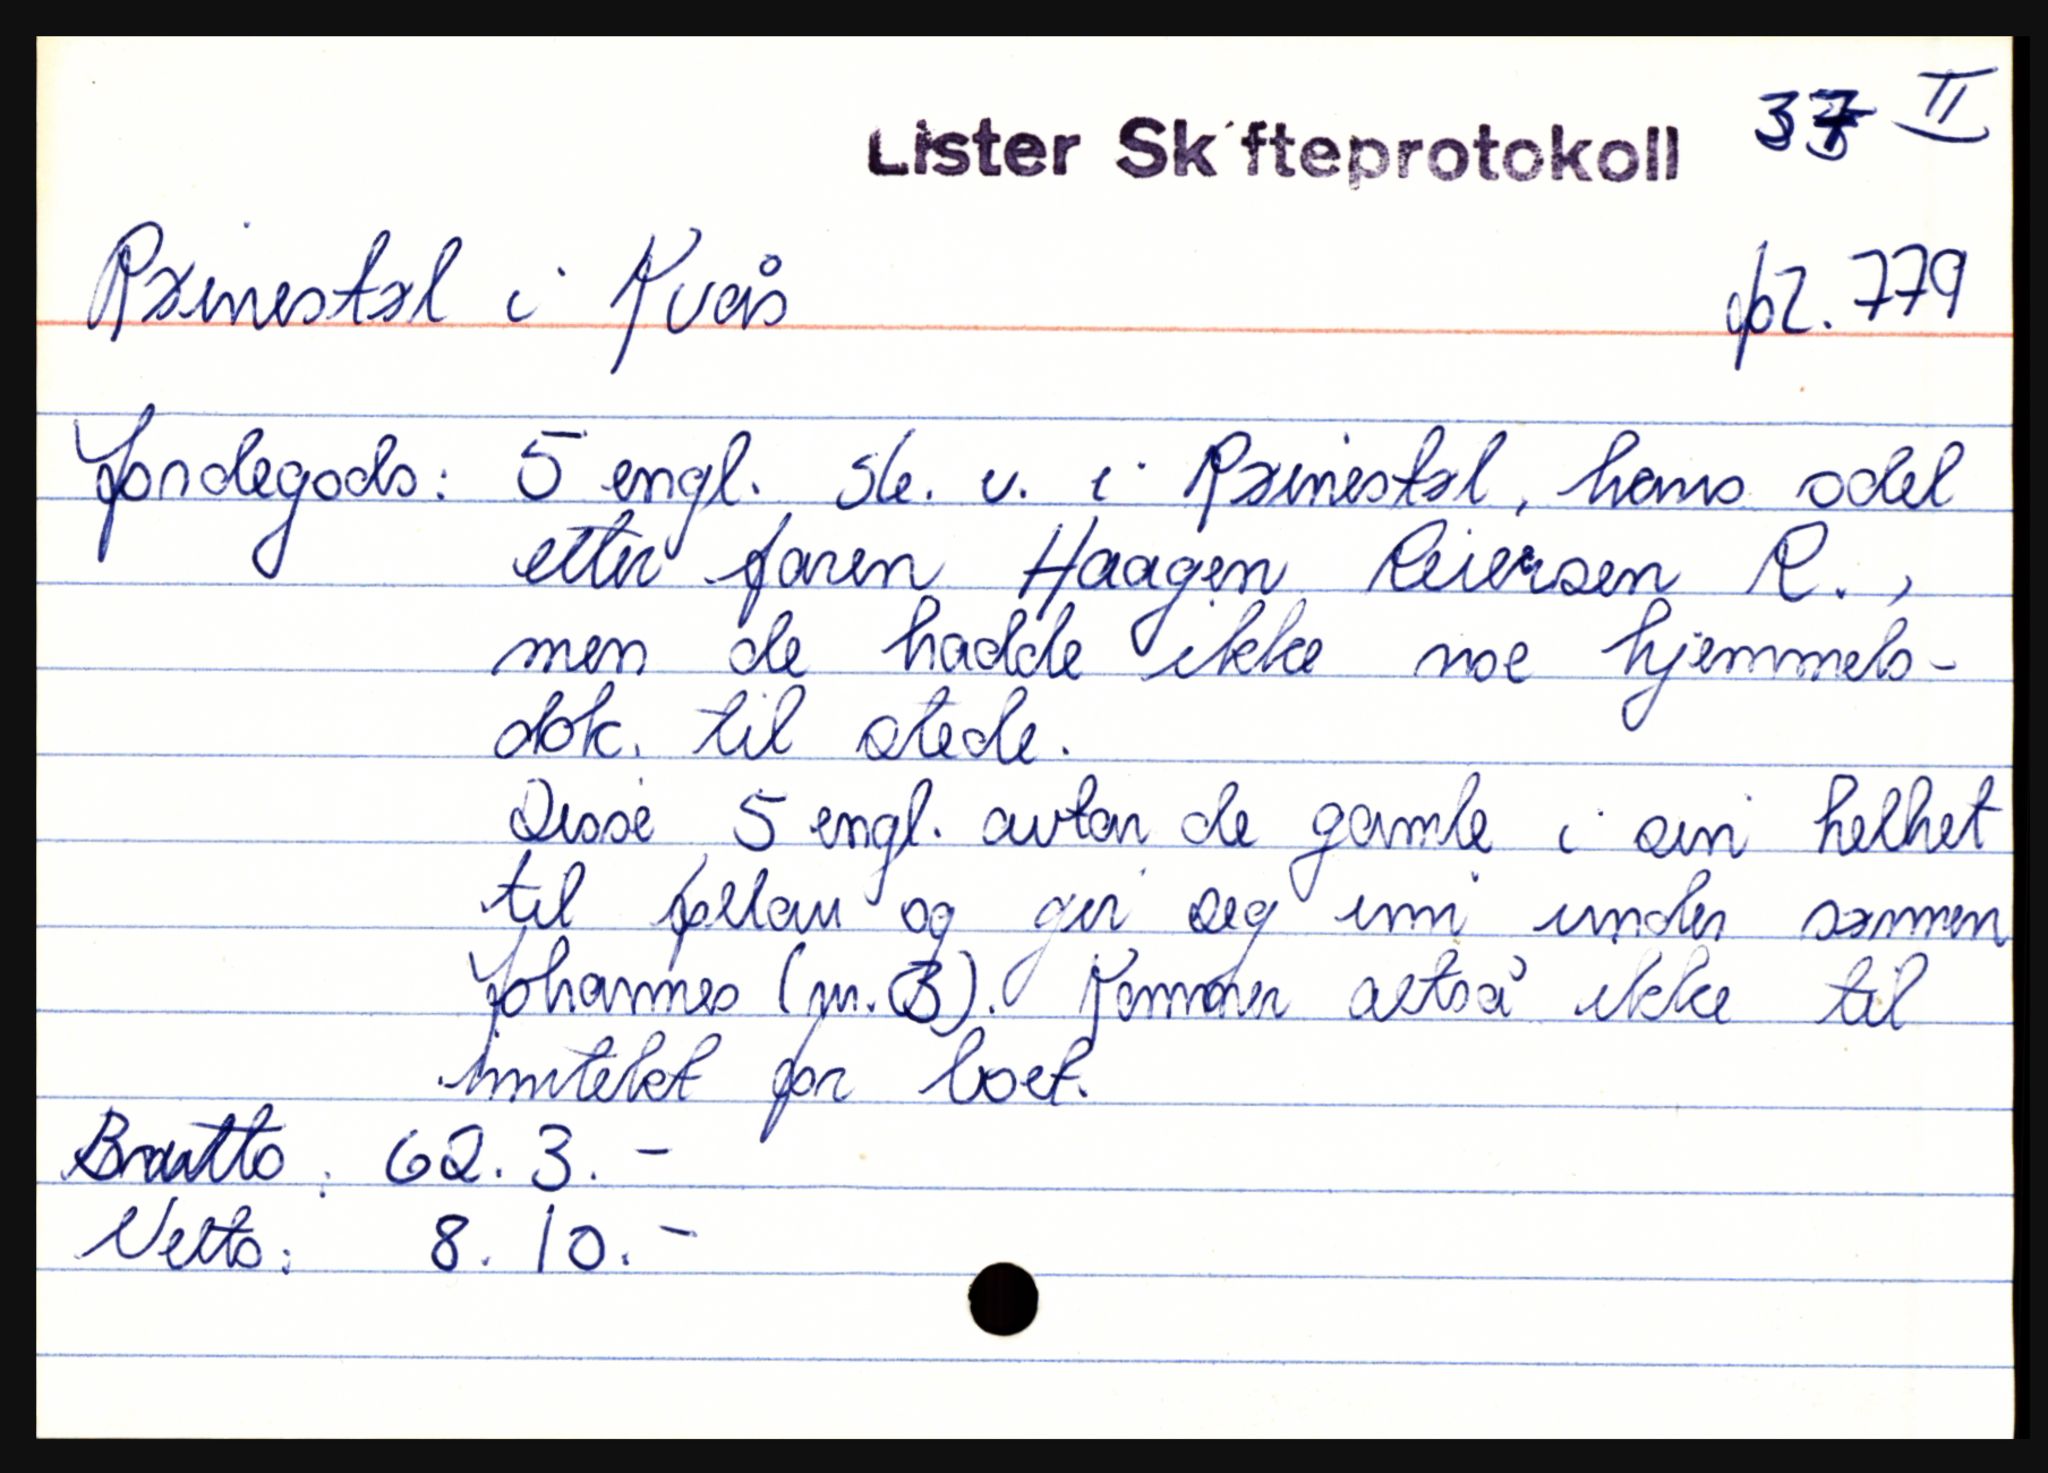 Lister Sk fteprotokoll II
Røinestøl i Kvås pr. 779
Jordegods: 5 engl. sk. v. i Røinestøl, hans odel
etter faren Haagen Reiersen R.,
men de hadde ikke noe hjemmels-
dok. til stede.
Disse 5 engl. avtar de gamle i sin helhet
til og gir seg inn under sønnen
Johannes (nr. 3). Kommer altså ikke til
inntekt for boet.
Brutto: 62. 3. -
Netto: 8. 10. -